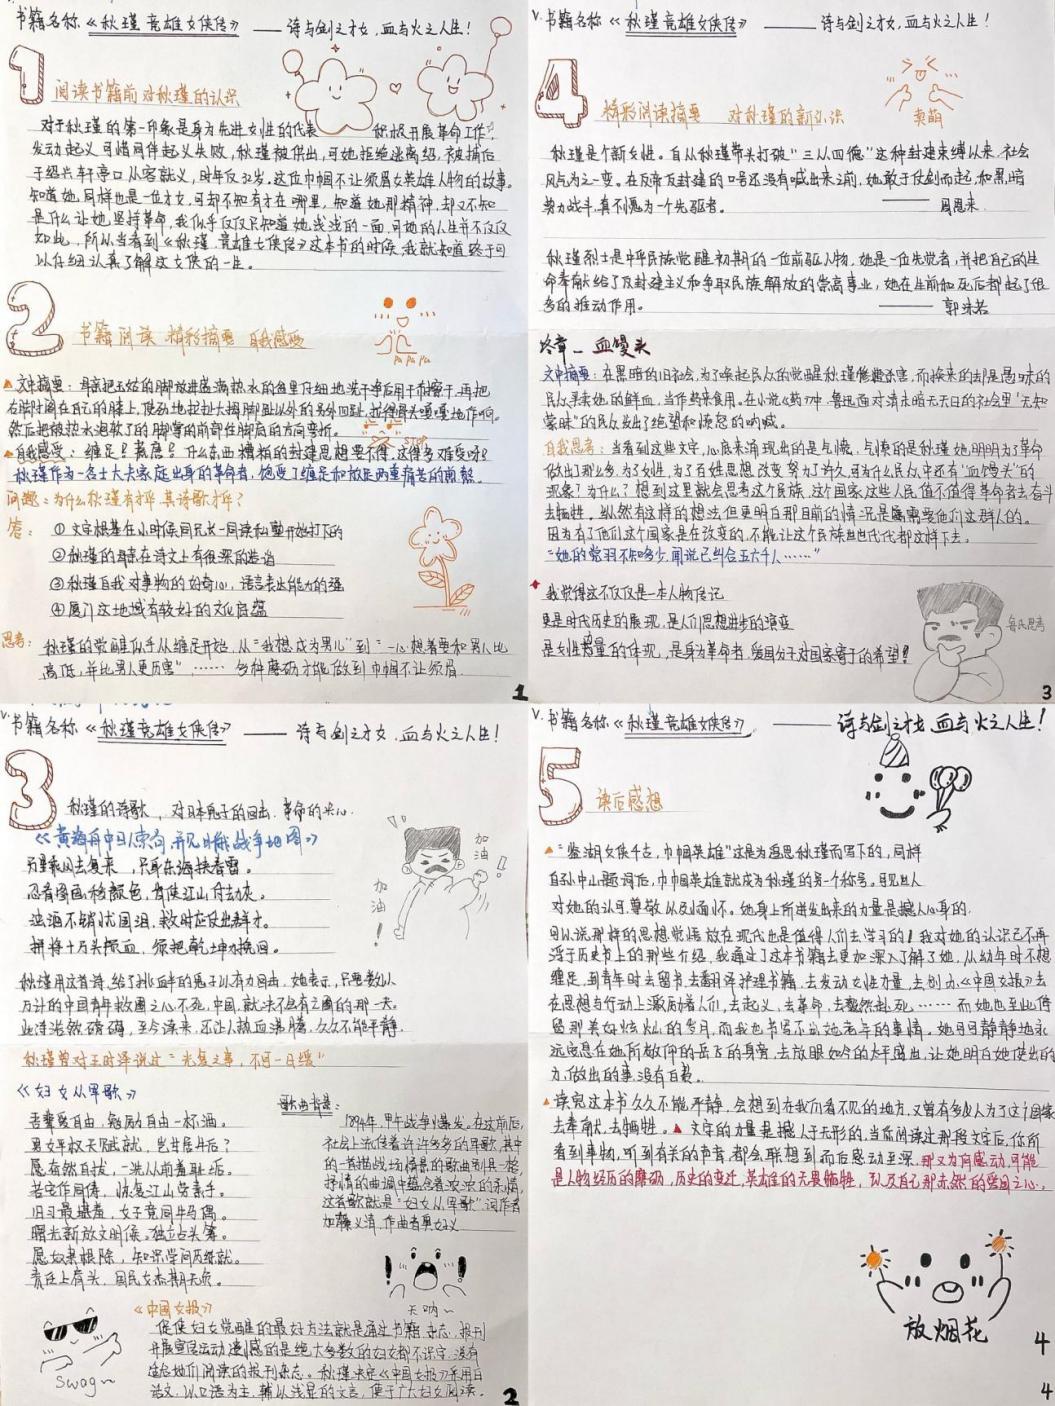 书籍名称《秋瑾 竞雄女侠传》——诗与剑之才女,血与火之人生!
1 阅读书籍前对秋瑾的认识
对于秋瑾的第一印象是身为先进女性的代表 积极开展革命工作,
发动起义可惜同伴起义失败,秋瑾被供出,可她拒绝逃离绍,被捕后
于绍兴轩亭口从容就义,时年仅32岁。这位巾帼不让须眉女英雄人物的故事。
知道她同样也是一位才女,可却不知有才在哪里,知道她那精神,却又不知
是什么让她坚持革命,我似乎仅仅只知道她浅浅的一面,可她的人生并不仅仅
如此,所以当看到《秋瑾 竞雄女侠传》这本书的时候,我就知道终于可
以仔细认真了解这女侠的一生。
2 书籍阅读 精彩摘要 自我感受
Pa Pa Pa
文中摘要:母亲把玉姑的脚放进盛满热水的盆里仔细地洗干净后用干布擦干,再把
右脚搁在自己的膝上,使劲地拉扯大拇脚趾以外的另外四趾,扯得骨头嘎嘎地作响。
然后把被热水泡软了的脚掌的前部往脚底的方向弯折。
STOP
自我感受:缠足?裹磨?什么东西 糟粕的封建思想要不得,这得多难受呀?
秋瑾作为一名士大夫家庭出身的革命者,饱受了缠足和放足两重痛苦的煎熬。
问题:为什么秋瑾有才呼 其诗歌才华?
答: ①文字根基在小时候同兄长一同读私塾开始打下的
②秋瑾的母亲在诗文上有很深的造诣
③秋瑾自我对事物的好奇心,语言表达能力的强
④厦门这地域有较好的文化底蕴
思考: 秋瑾的觉醒似乎从缠足开始,从"我想成为男儿"到"一心想着要和男人比
高低,并比男人更厉害"……多种磨砺才能做到巾帼不让须眉.
1
V.书籍名称《秋瑾 竞雄女侠传》——诗与剑之才女,血与火之人生!
4 精彩阅读摘要 对秋瑾的新认识
卖萌
秋瑾是个新女性。自从秋瑾带头打破"三从四德"这种封建束缚以来,社会
风气为之一变。在反帝反封建的口号还没有喊出来之前,她敢于仗剑而起,和黑暗
势力战斗,真不愧为一个先驱者。 —— 周恩来
秋瑾烈士是中华民族觉醒初期的一位前驱人物,她是一位先觉者,并把自己的生
命奉献给了反封建主义和争取民族解放的崇高事业,她在生前和死后都起了很
多的推动作用。 —— 郭沫若
终章 — 血馒头
文中摘要:在黑暗的旧社会,为了唤起民众的觉醒秋瑾惨遭杀害,而换来的却是愚昧的
民众寻求她的鲜血,当作药来食用。在小说《药》中,鲁迅面对清末暗无天日的社会里"无知
蒙昧"的民众发出了绝望和愤怒的呐喊。
自我思考:当看到这些文字,心底来涌现出的是气愤,气愤的是秋瑾她明明为了革命
做出了那么多,为了女性,为了百姓思想改变努力了许久,可为什么民众中还有"血馒头"的
现象?为什么?想到这里就会思考这个民族,这个国家,这些人民,值不值得革命者去奋斗
去牺牲。虽然有这样的想法,但更明白那目前的情况是需要他们这群人的。
因为有了他们这个国家是在改变的,不能让这个民族世世代代都这样下去。
"她的党羽不知多少,闻说已纠合五六千人……"
我觉得这不仅仅是一本人物传记
更是时代历史的展现,是人们思想进步的演变
是女性力量的体现,是身为革命者,爱国分子对国家寄予的希望!
鲁氏思考
3
V.书籍名称《秋瑾竞雄女侠传》——诗与剑之才女,血与火之人生!
3 秋瑾的诗歌,对日本鬼子的回击.革命的决心.
《黄海舟中日人索句并见日俄战争地图》
万里乘风去复来,只身东海挟春雷。
忍看图画移颜色,肯使江山付劫灰。
浊酒不销忧国泪,救时应仗出群才。
拼将十万头颅血,须把乾坤力挽回。
加油!!
加油!
秋瑾用这首诗,给了挑衅的鬼子以有力回击,她表示,只要数以
万计的中国青年救国之心不死,中国,就决不会有亡国的那一天。
此诗浩然磅礴,至今读来,还让人热血沸腾,久久不能平静.
秋瑾曾对王时泽说过"光复之事,不可一日缓"
《妇女从军歌》
吾辈爱自由,勉励自由一杯酒。
男女平权天赋就,岂甘居牛后?
愿奋然自拔,一洗从前羞耻垢。
若安作同俦,恢复江山劳素手。
旧习最堪羞,女子竟同牛马偶。
曙光新放文明候,独立占头筹。
愿奴隶根除,知识学问历练就。
责任上肩头,国民女杰期无负。
歌曲背景:
1894年,甲午战争爆发。在这前后,
社会上流传着许许多多的军歌,其中
的一首描战场情景的歌曲别具一格,
抒情的曲调中蕴含着哀哀的柔情,
这首歌就是"妇女从军歌"词作者
加藤义清,作曲者奥好义
天呐~
《中国女报》
促使妇女觉醒的最好方法就是通过书籍、杂志、报刊
开展宣传运动,遗憾的是绝大多数的妇女都不识字,没有
适合她们阅读的报刊杂志。秋瑾决定《中国女报》采用白
话文,以口语为主,辅以浅显的文言,便于广大妇女阅读。
swag~
2
V.书籍名称《秋瑾竞雄女侠传》——诗与剑之才女,血与火之人生!
5 读后感想
"鉴湖女侠千古,巾帼英雄"这是为追思秋瑾而写下的,同样
自孙中山题词后,巾帼英雄就成为秋瑾的另一个称号。可见世人
对她的认可,尊敬以及缅怀。她身上所迸发出来的力量是撼人心身的.
可以说那样的思想觉悟放在现代也是值得人们去学习的!我对她的认识已不再
浮于历史书上的那些介绍,我通过了这本书去更加深入了解了她,从幼年时不想
缠足,到青年时去留书,去翻译护理书籍,去发动女性力量,去创办《中国女报》去
在思想与行动上激励着人们,去起义,去革命,去毅然赴死,……而她也至此停
留那美好炫灿的岁月,而我也书写不出她老年的事情。她只可静静地永
远安息在她所敬仰的岳飞的身旁,去放眼如今的太平盛世,让她明白她使出的
力,做出的事没有白费。
读完这本书久久不能平静,会想到在我们看不见的地方,又曾有多少人为了这个国家
去奉献,去牺牲。文字的力量是撼人于无形的,当你阅读过那段文字后,你所
看到事物,听到有关的声音,都会联想到而后感动至深,那又为何感动,可能
是人物经历的磨砺,历史的变迁,英雄的无畏牺牲,以及自己那赤然的爱国之心。
放烟花
4
4